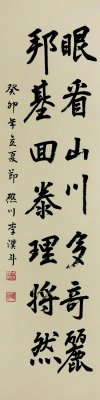 眼看山川多奇麗
邦基回泰理將然
癸卯年立夏節熊川李漢斗